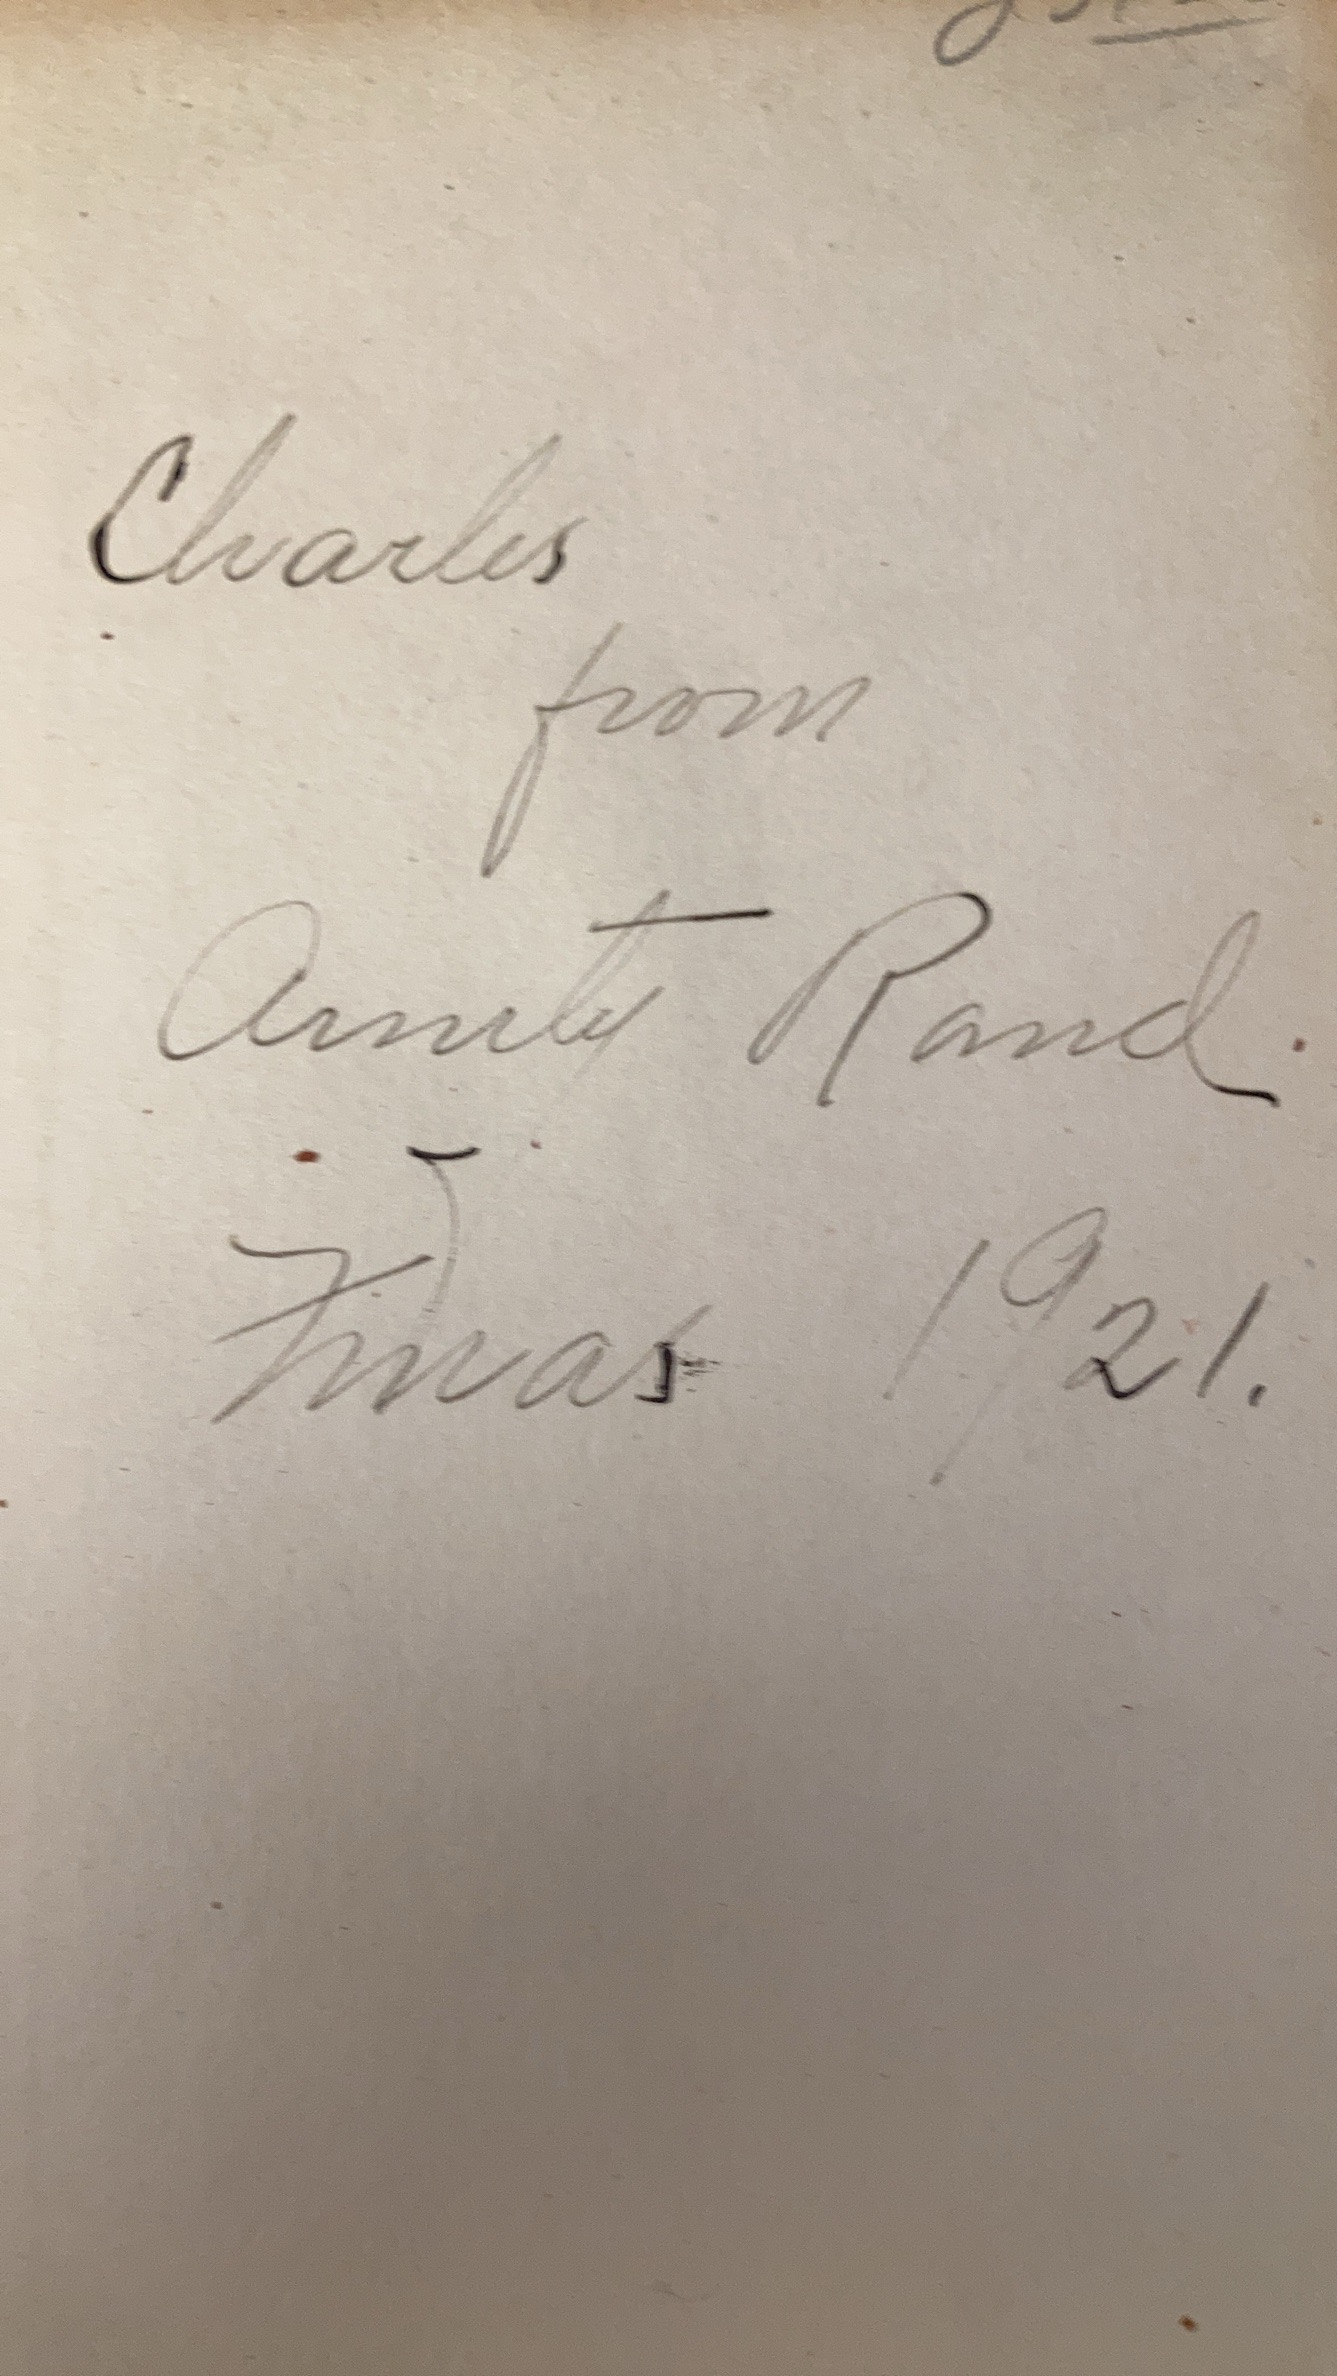 Charles
from
Aunty Rand.
Xmas 1921.